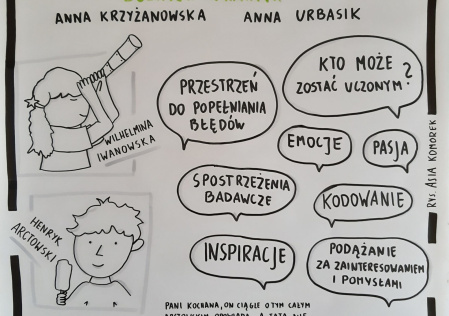 ANNA KRZYŻANOWSKA ANNA URBASIK
WILHELMINA
IWANOWSKA
PRZESTRZEŃ
DO POPEŁNIANIA
BŁĘDÓW
KTO MOŻE
ZOSTAĆ UCZONYM?
EMOCJE
PASJA
SPOSTRZEŻENIA
BADAWCZE
KODOWANIE
HENRYK
ARCTOWSKI
INSPIRACJE
PODĄŻANIE
ZA ZAINTERESOWANIEM
I POMYSŁAMI
RYS ASIA KOMOREK
PANI KOCHANA, ON CIĄGLE O TYM CAŁYM